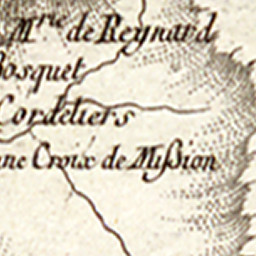 M.rie de Reynard
Bosquet
Cordeliers
ne Croix de Mission